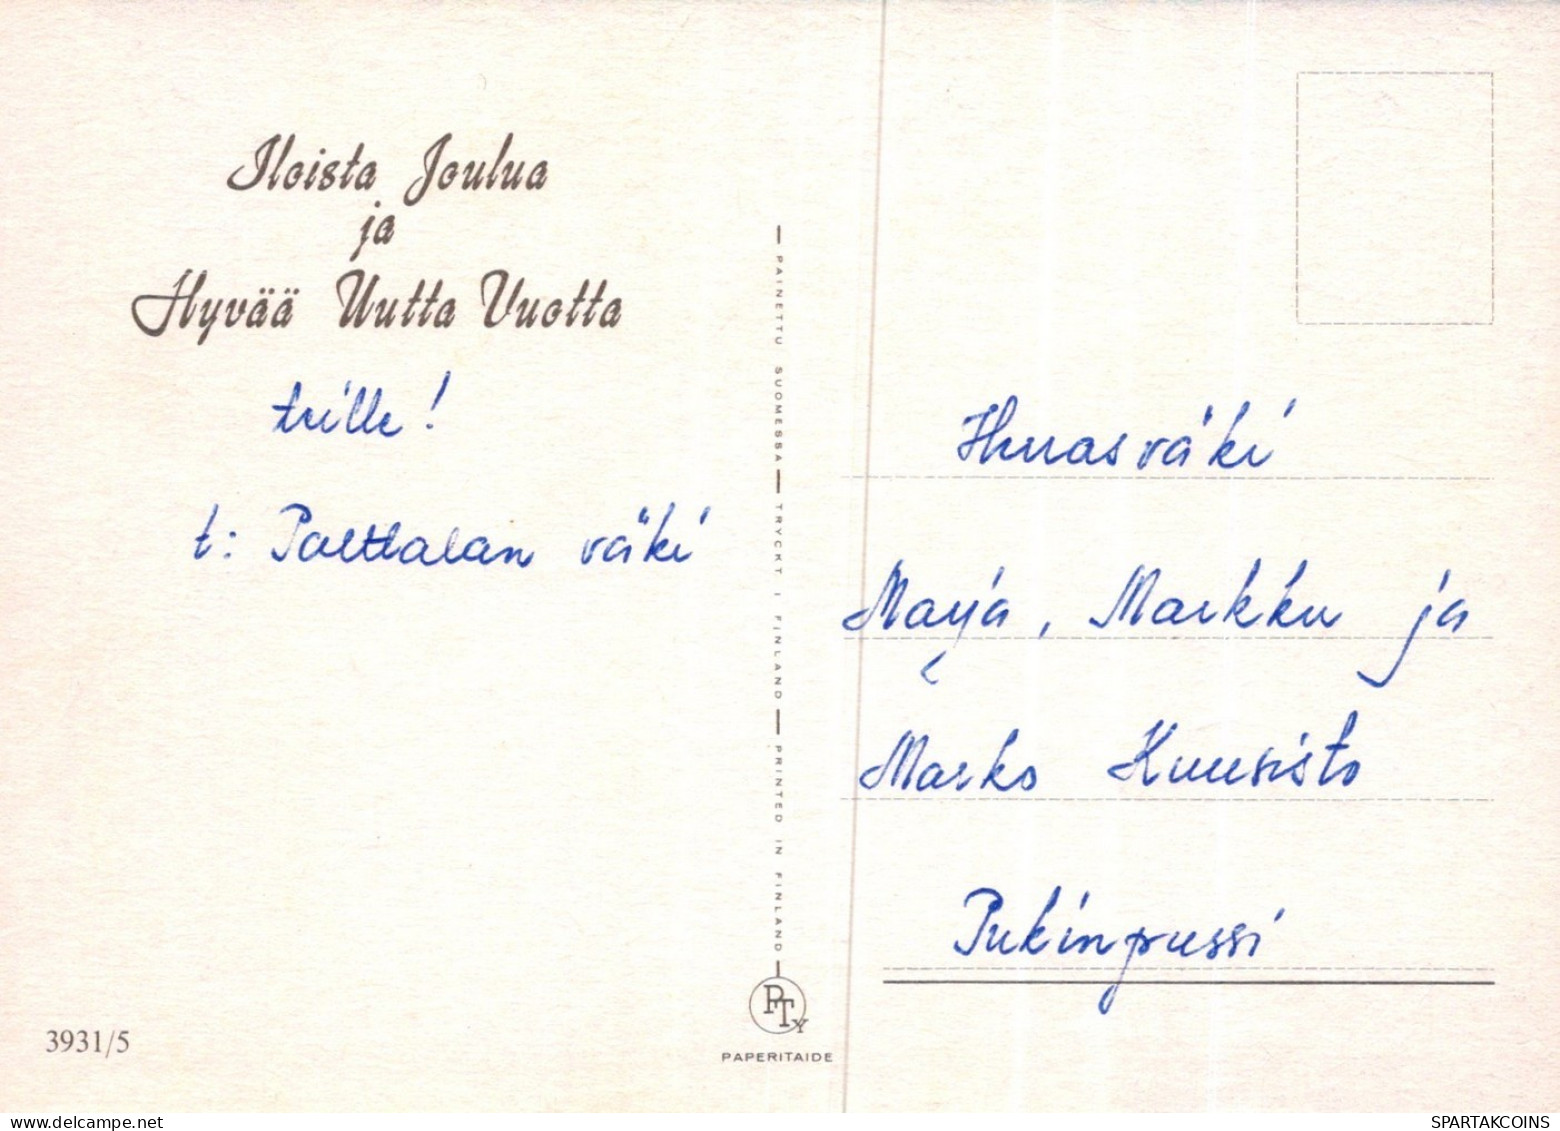 Iloista Joulua
ja
Hyvää Uutta Vuotta
teille!
t: Palttalan väki
PAINETTU SUOMESSA — TRYCKT I FINLAND — PRINTED IN FINLAND
PTY
PAPERITAIDE
3931/5
väki
Marja, Markku ja
Marko Kuusisto
Pukinpussi
SPARTAKCOINS